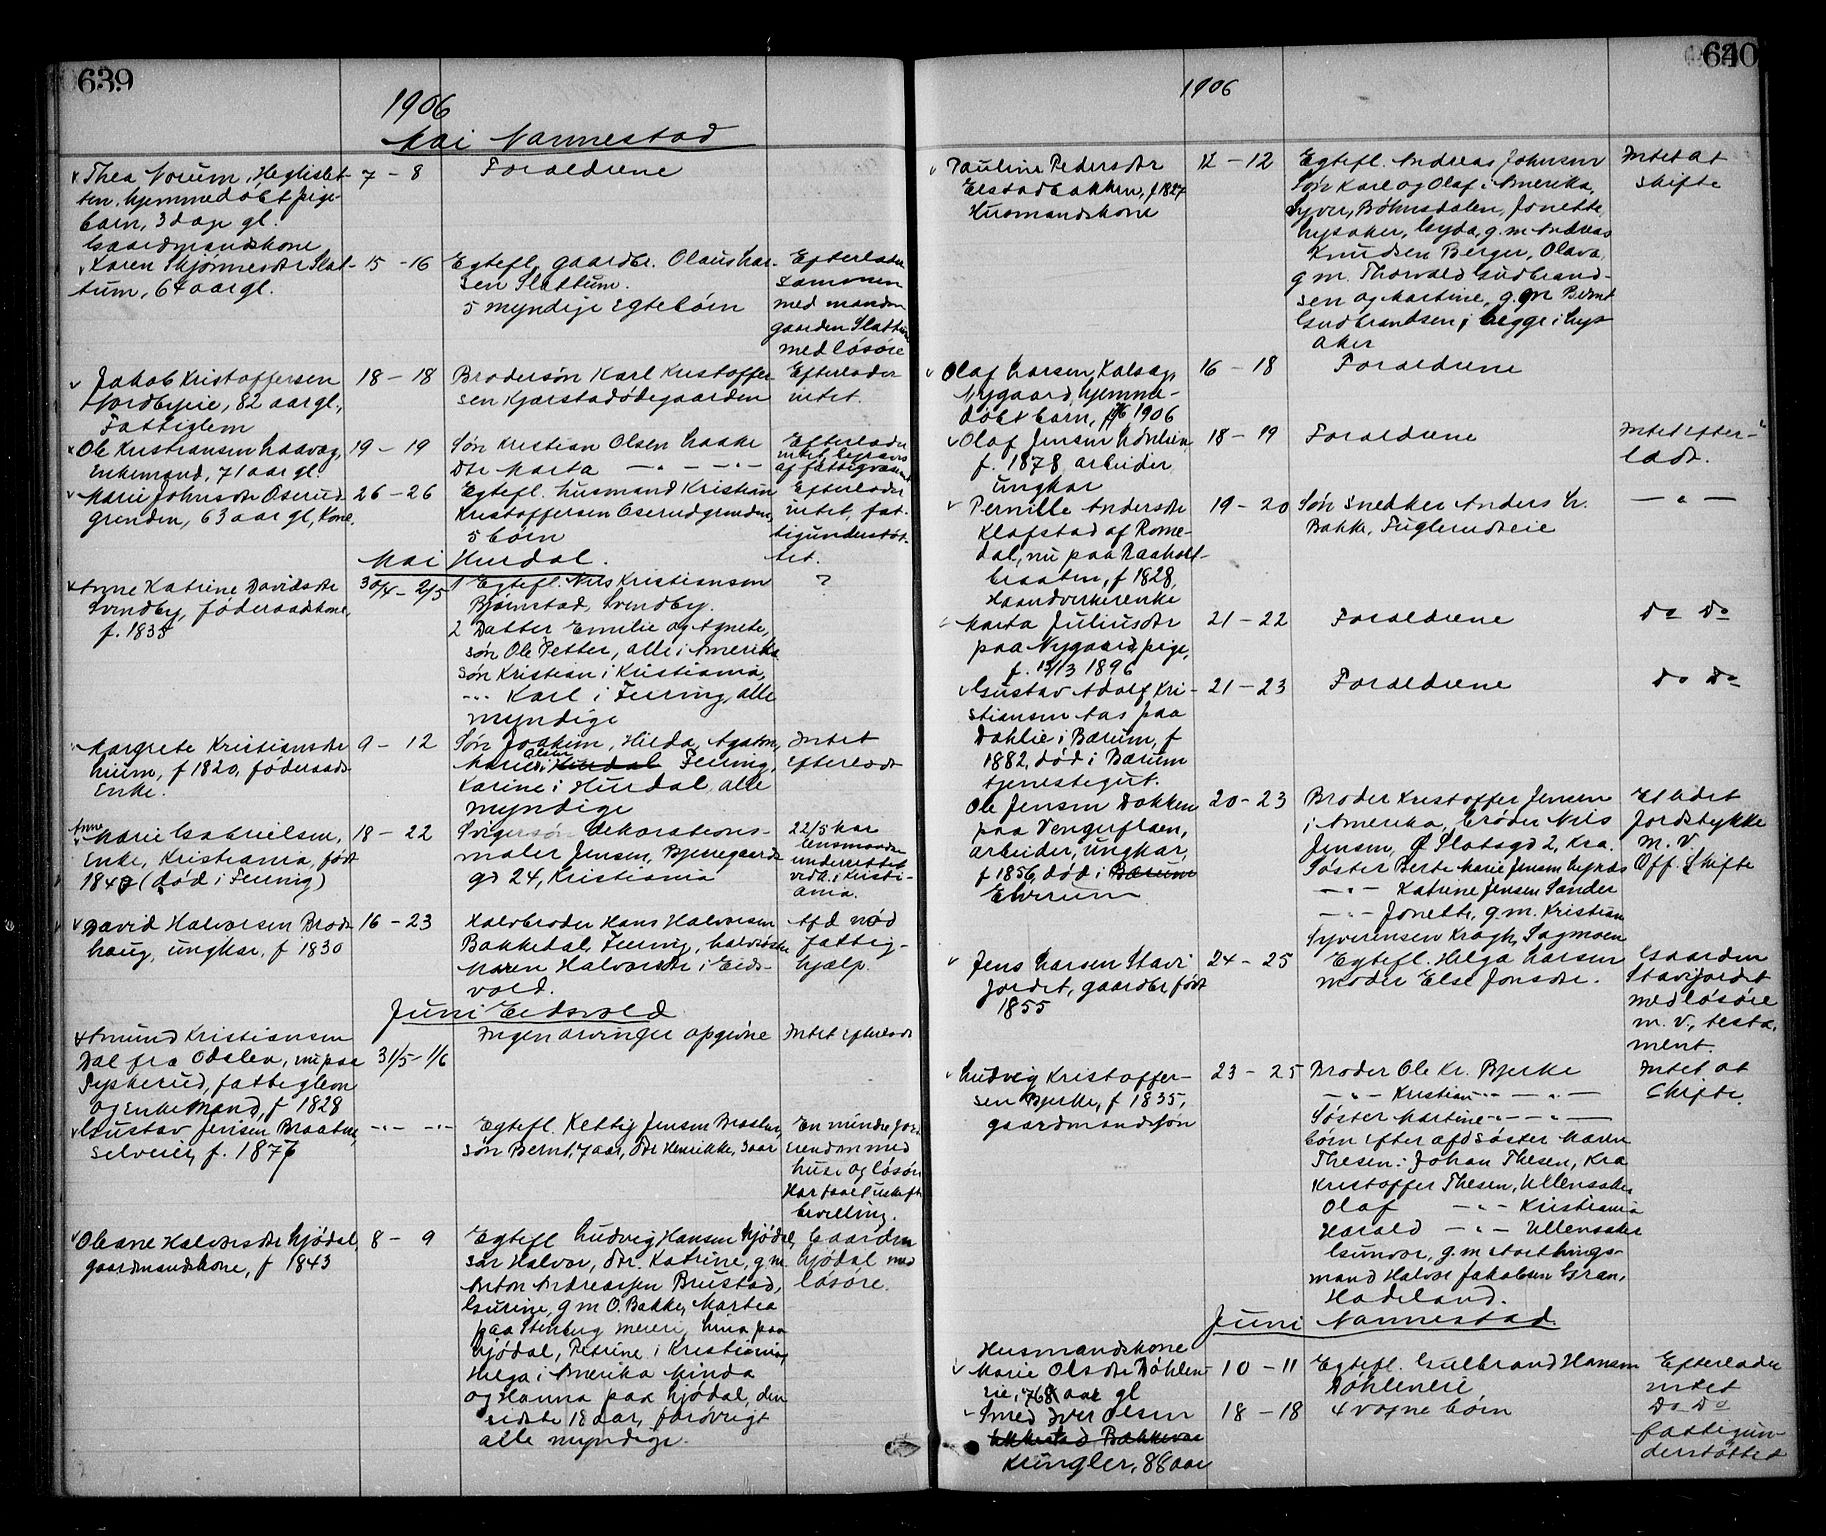 639
1906
Mai Nannestad
Thea Norum, Heglislet-
ten, hjemmedøbt pige-
barn, 3 dage gl.
7 - 8
Forældrene
Gaardmandskone
Karen Skjønnesdtr Slat-
tum, 64 aar gl.
15 - 16
Egtefl. gaardbr. Olaus Lar-
sen Slattum.
5 myndige Egtebörn
Efterlader
sammen
med manden
gaarden Slattum
med løsøre
Jakob Kristoffersen
Nordbyeie, 82 aar gl.,
Fattiglem
18 - 18
Brodersön Karl Kristoffer-
sen Kjærstadødegaarden
Efterlader
intet.
Ole Kristiansen
Enkemand, 71 aar gl.
19 - 19
Søn Kristian Olsen Haake
Dtr Marta - " - - " -
Efterlader
intet, begraves
af fattigvæsenet
Marie Johnsdtr Oserud-
grenden, 63 aar gl, Kone.
26 - 26
Egtefl. husmand Kristian
Kristoffersen Oserudgrenden,
5 børn
Efterlader
intet, fat-
tigunderstøt-
tet.
Mai Hurdal.
Anne Katrine Davidsdtr
Svendby, föderaadskone,
f. 1835
30/4 - 2/5
1 Egtefl. Nils Kristiansen
Bjørnstad, Svendby.
2 Datter Emilie og Agnete,
søn Ole Petter, alle i Amerika
søn Kristian i Kristiania,
- " - Karl i Feiring, alle
myndige
?
Margrete Kristiansdtr
Lium, f 1820, føderaads-
Enke.
9 - 12
Søn Joakim, Hilda, Agaton,
Marie Olsen i Hurdal Feiring,
Karine i Hurdal, alle
myndige
Intet
Efterladt
Anne
Marie Gabrielsen,
Enke, Kristiania, født
1849 (død i Feiring)
18 - 22
Svigersøn Dekorations-
maler Jensen, Bjerregaards
gd 24, Kristiania
22/5 har
lensmanden
underrettet
vedk. i Kristi-
ania.
David Halvorsen Brode-
haug, ungkar, f 1830
16 - 23
Halvbroder Hans Halvorsen
Bakkedal, Feiring, halvsöster
Maren Halvorsdtr i Eids-
vold.
Afd nød
fattig-
hjælp.
Juni Eidsvold
Amund Kristiansen
Dal fra Odalen, nu paa
Tyskerud, fattiglem
og Enkemand, f 1828
31/5 - 1/6
Ingen arvinger opgivne
Intet efterladt
Gustav Jensen Braaten,
selveier, f. 1876
- " - - " -
Egtefl. Kettig Jensen Braaten,
søn Bernt, 7 aar, dtr Henrikke, 3 aar
En mindre jord-
eiendom med
huse og løsøre
Har faaet uskifte
bevilling.
Oleane Halvorsdtr Hjødal,
gaardmandskone, f 1843
8 - 9
Egtefl Ludvig Hansen Hjødal,
søn Halvor, dtr. Katrine, g.m.
Anton Andreassen Brustad,
Gurine, g m O. Bakke, Martea
paa Stenberg meieri, Lina paa
Hjødal, Petrine i Kristiania,
Helga i Amerika Minda
og Hanna paa Hjødal, den
sidste 18 aar, forøvrigt
alle myndige.
Gaarden
Hjødal med
løsøre.
640
1906
Pauline Pedersdtr
Eestadbakken, f 1827
Husmandskone
12 - 12
Egtefl. Andreas Johnsen
Søn Karl og Olaf i Amerika,
Syver, Böhnsdalen, Jonette,
Lysaker, Gyda, g.m Andreas
Knudsen Berger, Olava
g m. Thorvald Gudbrand-
sen og Martine, g.m Bernt
Gudbrandsen, begge i Lys-
aker
Intet at
skifte
Olaf Larsen, Kalsøg
Nygaard, hjemme-
døbt barn, 1906
16 - 18
Forældrene
Olaf Jensen Lönlien,
f. 1878, arbeider,
ungkar
18 - 19
Forældrene
Intet efter-
ladt.
Pernille Andersdtr
Klafstad af Rome-
dal, nu paa Raaholt-
braaten, f 1828,
Haandverkerenke
19 - 20
Søn snedker Anders H.
Bakke, Fuglerudseie
- " -
Marta Juliusdtr
paa Nygaard, pige,
f. 13/13 1896
21 - 22
Forældrene
Do Do
Gustav Adolf Kri-
stiansen Aas paa
Dahlie i Bærum, f
1882, död i Bærum
tjenestegut.
21 - 23
Forældrene
Do Do
Ole Jensen Dokken
paa Vengerflaen,
arbeider, ungkar,
f 1856, död i Bærum
Elverum
20 - 23
Broder Kristoffer Jensen
i Amerika, brøder Nils
Jensen, Ø Slotsgd 2, Kra.
Søster Berte Marie Jensen
- " - Katrine Jensen Sander
- " - Jonette, g.m. Kristian
Syverinsen Kragh, Sagmoen
Et lidet
Jordstykke
m. v.
Off. Skifte
Jens Larsen Stavi
jordet, gaardbr, født
1855
24 - 25
Egtefl. Helga Larsen
moder Else Jonsdtr.
Gaarden
Stavijordet
med løsøre
m. v, testa-
ment.
Ludvig Kristoffer-
sen Bjerke, f 1835,
gaardmandssøn
23 - 25
Broder Ole Kr. Bjerke
- " - Kristian - " - - " -
Søster Martine - " - - " -
børn efter afd søster Maren
Thesen: Johan Thesen, Kra
Kristoffer Thesen, Ullensaker
Olaf - " - Kristiania
Harald - " - Ullensaker
Gunvor, g.m storthings-
mand Halvor Jakobsen Gran,
Hadeland.
Intet at
skifte.
Juni Nannestad
Husmandskone
Marie Olsdtr Døhlen-
eie, 76 aar gl
10 - 11
Egtefl. Gulbrand Hansen
Døhleneie
Efterlader
intet
Smed Iver Olsen
Bakkeræ
Küngler, 86 aar
18 - 18
4 voxne børn
Do Do
fattigun-
derstøttet